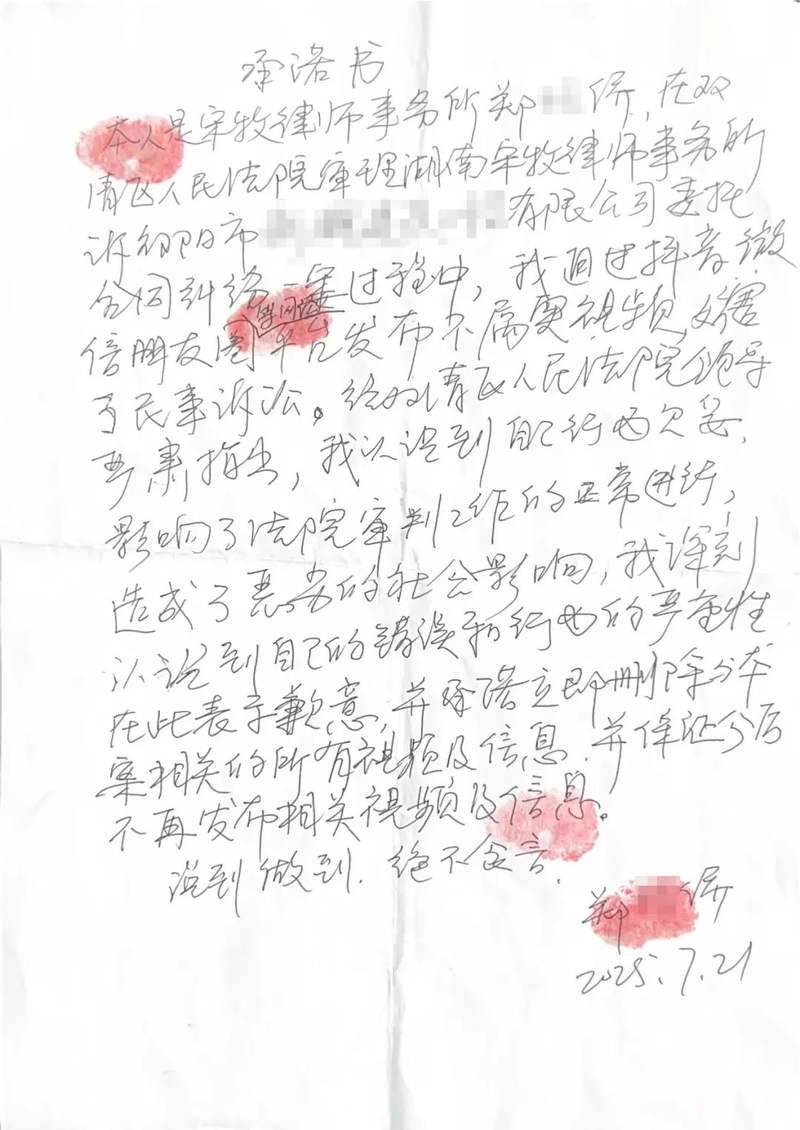 承诺书
本人是宋牧律师事务所郑 侨,在双
清区人民法院审理湖南宋牧律师事务所
诉邵阳市 有限公司委托
合同纠纷一案过程中,我通过抖音、微
信朋友圈 平台发布不属实视频,妨害
了民事诉讼。经双清区人民法院领导
严肃指出,我认识到自己行为欠妥,
影响了法院审判工作的正常进行,
造成了恶劣的社会影响,我深刻
认识到自己的错误和行为的严重性
在此表示歉意,并承诺立即删除与本
案相关的所有视频及信息,并保证今后
不再发布相关视频及信息。
说到做到,绝不食言。
郑 侨
2025.7.21